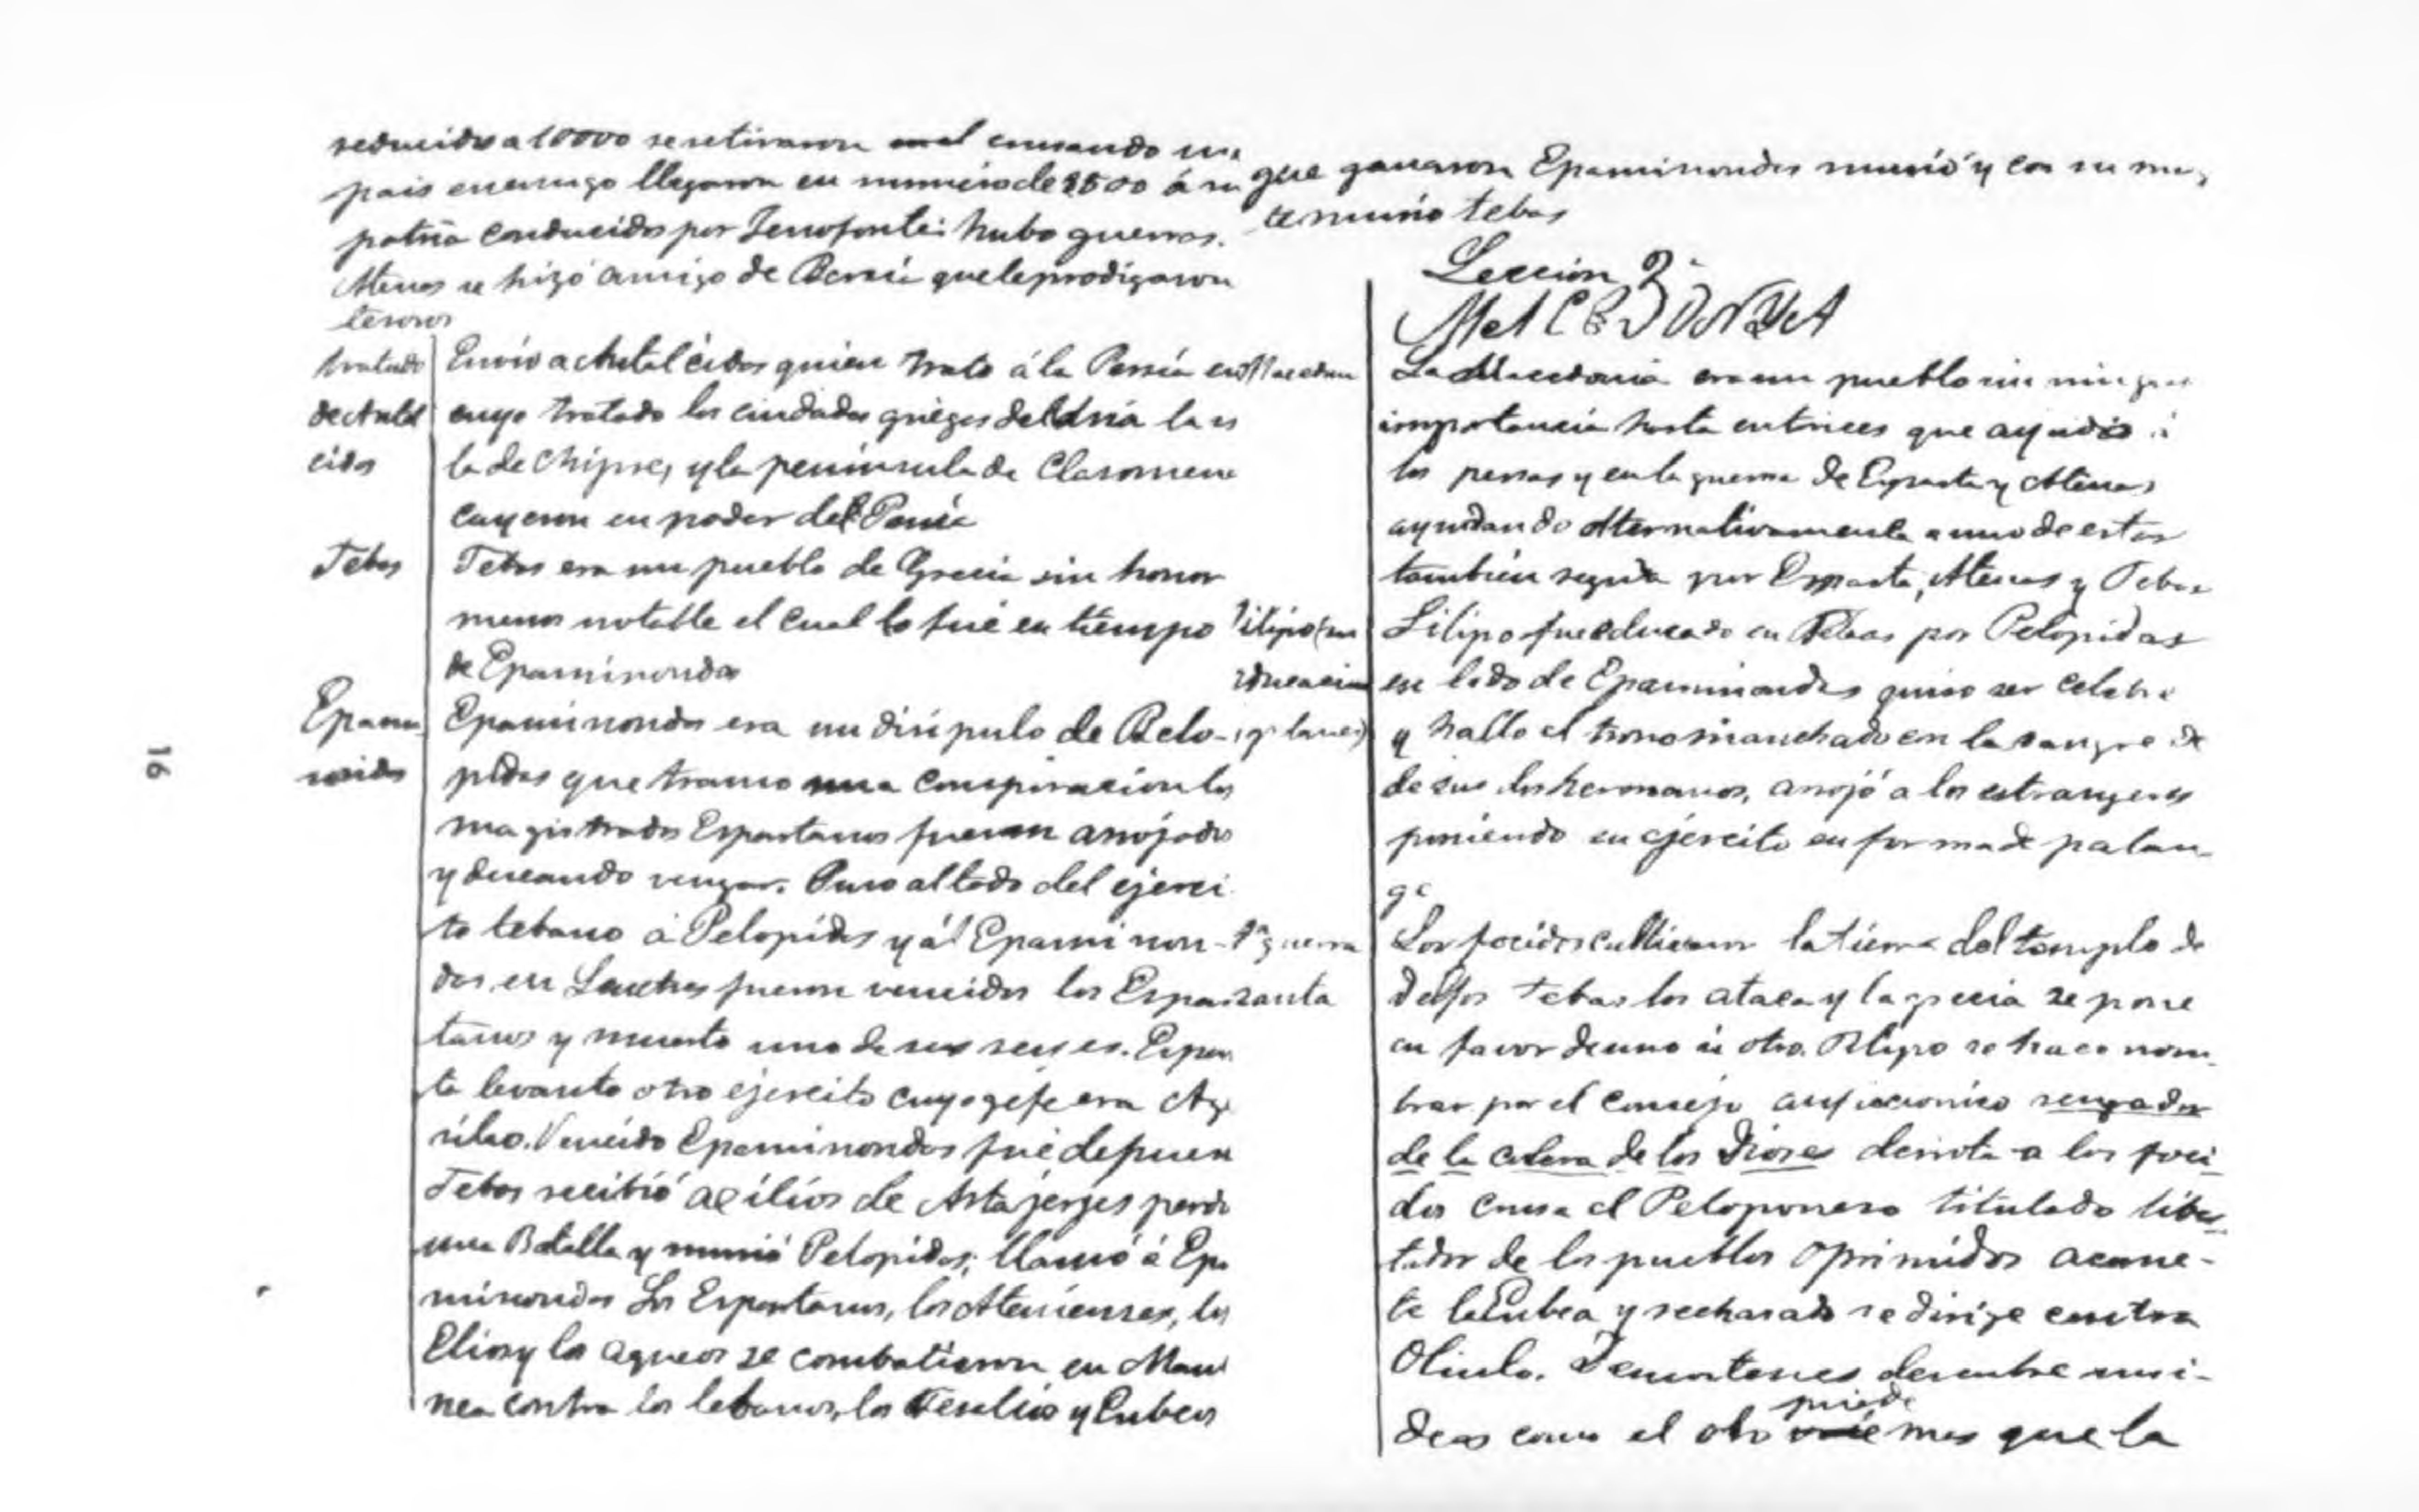 reducidos a 10000 se retiraron cruzando un
pais enemigo llegaron en numero de 8500 á su
patria conducidos por Jenofonte: hubo guerras.
Atenas se hizo amigo de Persia que le prodigaron
tesoros
tratado
de Antal
cidas
Envió a Antalcidas quien trato á la Persia en
cuyo tratado las ciudades griegas del Asia la is
la de Chipre, y la peninsula de Clasomene
cayeron en poder de Persia
Tebas
Tebas era un pueblo de Grecia sin honor
menos notable el cual lo fué en tiempo
de Epaminondas
Epami
nondas
Epaminondas era un disipulo de Pelo-
pidas que tramo una conspiracion los
magistrados Espartanos fueron arrojados
y deseando vengar. Puso al lado del ejerci
to tebano a Pelopidas y á Epaminon-
das en Leuctras fueron vencidos los Espar
tanos y muerto uno de sus reyes. Espar
ta levanto otro ejercito cuyo gefe era Agi
silao. Vencido Epaminondas fué depues
Tebas recibió aucilios de Artajerjes perdio
una Batalla y murió Pelopidas; llamó á Epa
minondas Los Espartanos, los Atenienses, los
Elios y los aqueos se combatieron en Manti
nea contra los tebanos, los Tesalios y Eubeos
que ganaron Epaminondas murió y con su muer
te murio tebas
Lección 2ª
MACEDONIA
Macedonia
La Macedonia era un pueblo sin ninguna
importancia hasta entonces que ayudó á
los persas y en la guerra de Esparta y Atenas
ayudando alternativamente a uno de estos
también seguida por Esparta, Atenas y Tebas
Filipo (su
educacion
y planes)
Filipo fue educado en Tebas por Pelopidas
ese lado de Epaminondas quiso ser celebre
y hallo el trono manchado con la sangre de
de sus dos hermanos, arrojó a los estrangeros
poniendo su ejército en forma de palan-
ge
1ª guerra
santa
Los focidos cultivaron la tierra del templo de
delfos Tebas los ataca y la grecia se pone
en favor de uno ú otro. Filipo se hace nom-
brar por el Consejo anficcionico vengador
de la colera de los Dioses derrota a los foci
dos Crusa el Peloponeso titulado liber-
tador de los pueblos oprimidos acome-
te la Eubea y rechasado se dirige contra
Olinto. Demostenes descubre sus i-
deas como el oro puede mas que la
16